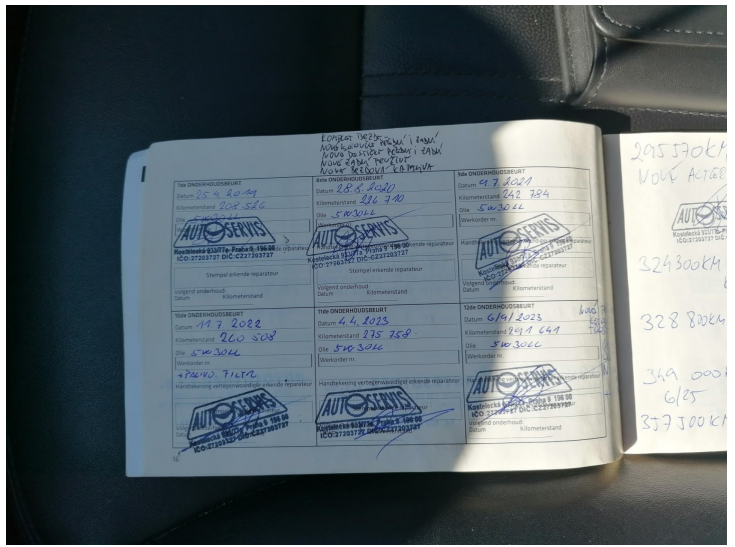 KOMPLET BRZDY
NOVÉ KOTOUČE PŘEDNÍ I ZADNÍ
NOVÉ DESTIČKY PŘEDNÍ I ZADNÍ
NOVÉ ZADNÍ
NOVÁ BRZDOVÁ KAPALINA
7de ONDERHOUDSBEURT
Datum 25.4.2019
Kilometerstand 208 526
Olie 5W30LL
AUTOSERVIS
Kostelecká 933/77a Praha 9 196 00
IČO:27203727 DIČ:CZ27203727
Stempel erkende reparateur
Volgend onderhoud:
Datum Kilometerstand
8ste ONDERHOUDSBEURT
Datum 28.8.2020
Kilometerstand 226 710
Olie 5W30LL
Werkorder nr.
AUTOSERVIS
Kostelecká 933/77a Praha 9 196 00
IČO:27203727 DIČ:CZ27203727
Stempel erkende reparateur
Volgend onderhoud:
Datum Kilometerstand
9de ONDERHOUDSBEURT
Datum 9.7.2021
Kilometerstand 242 784
Olie 5W30LL
Werkorder nr.
AUTOSERVIS
Volgend onderhoud:
Datum Kilometerstand
10de ONDERHOUDSBEURT
Datum 11.7.2022
Kilometerstand 260 508
Olie 5W30LL
Werkorder nr.
+ PALIVO. FILTR
Handtekening vertegenwoordiger erkende reparateur
AUTOSERVIS
Kostelecká 933/77a Praha 9 196 00
IČO:27203727 DIČ:CZ27203727
11de ONDERHOUDSBEURT
Datum 4.4.2023
Kilometerstand 275 758
Olie 5W30LL
Werkorder nr.
Handtekening vertegenwoordiger erkende reparateur
AUTOSERVIS
Kostelecká 933/77a Praha 9 196 00
IČO:27203727 DIČ:CZ27203727
12de ONDERHOUDSBEURT
Datum 6/9/2023
Kilometerstand 291 641
Olie 5W30LL
Werkorder nr.
AUTOSERVIS
Kostelecká 933/77a Praha 9 196 00
IČO:27203727 DIČ:CZ27203727
Volgend onderhoud:
Datum Kilometerstand
16
295 570KM
NOVÝ ALTER
324300KM
328 800KM
349 000
6/25
357 500KM